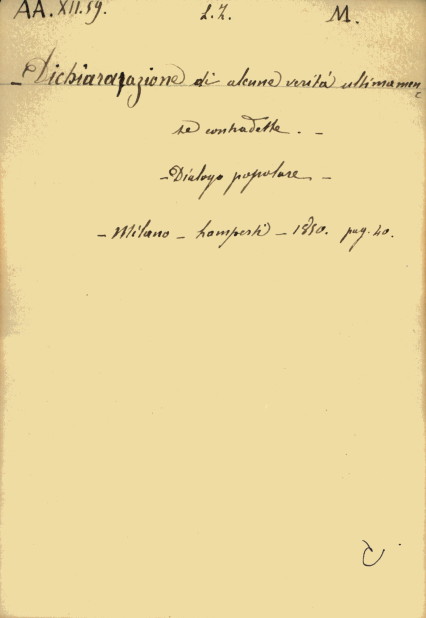 AA.XII.59. L.Z. M.
- Dichiarazione di alcune verità ultimamen
te contradette. -
- Dialogo popolare -
- Milano - Lamperti - 1850. pag. 40.